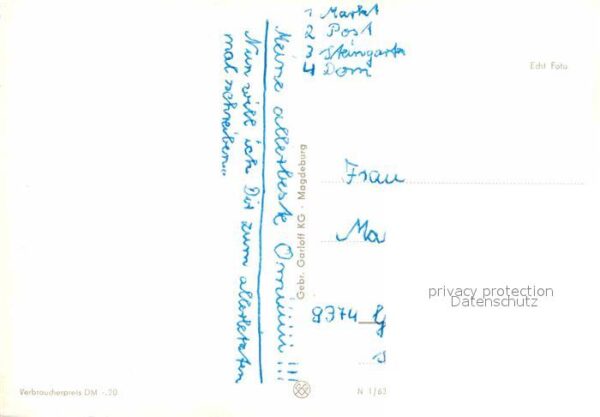 1 Markt
2 Post
3 Steingarten
4 Dom
Echt Foto
Meine allerbeste Omiiiii!!!!!!!!
Nun will ich Dir zum allerletzten
mal schreiben...
Gebr. Garloff KG · Magdeburg
Frau
Ma
privacy protection
Datenschutz
9374
Verbraucherpreis DM -.20
N 1/63